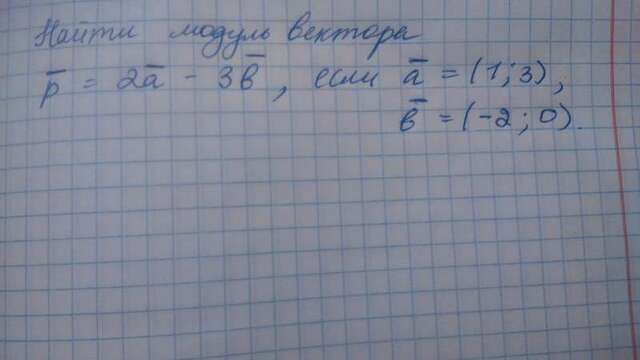 Найти модуль вектора
p̄ = 2ā - 3b̄, если ā = (1; 3),
b̄ = (-2; 0).